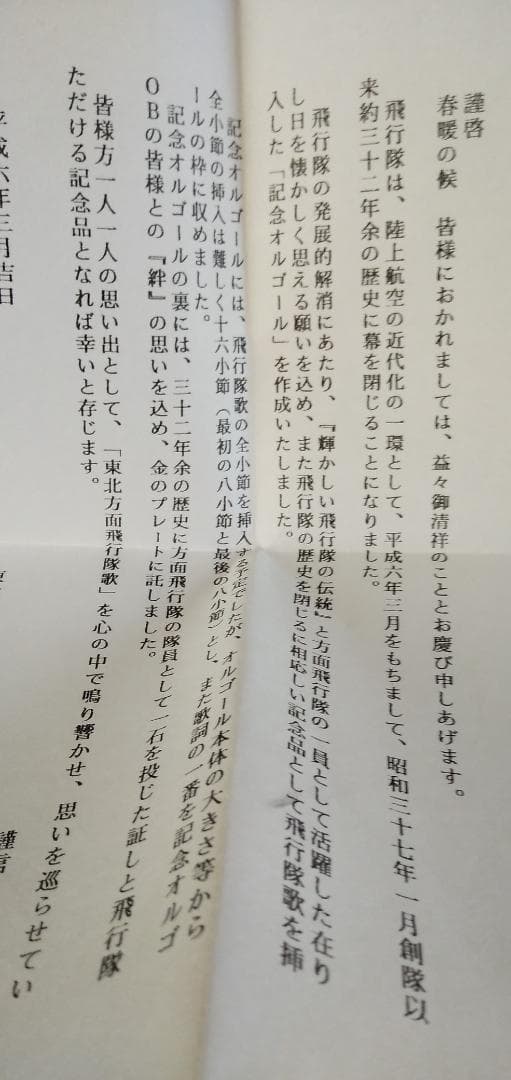 謹啓
春暖の候　皆様におかれましては、益々御清祥のこととお慶び申しあげます。
飛行隊は、陸上航空の近代化の一環として、平成六年三月をもちまして、昭和三十七年一月創隊以
来約三十二年余の歴史に幕を閉じることになりました。
飛行隊の発展的解消にあたり、『輝かしい飛行隊の伝統』と方面飛行隊の一員として活躍した在り
し日を懐かしく思える願いを込め、また飛行隊の歴史を閉じるに相応しい記念品として飛行隊歌を挿
入した「記念オルゴール」を作成いたしました。
記念オルゴールには、飛行隊歌の全小節を挿入する予定でしたが、オルゴール本体の大きさ等から
全小節の挿入は難しく十六小節（最初の八小節と最後の八小節）とし、また歌詞の一番を記念オルゴ
ールの枠に収めました。
記念オルゴールの裏には、三十二年余の歴史に方面飛行隊の隊員として一石を投じた証しと飛行隊
OBの皆様との『絆』の思いを込め、金のプレートに託しました。
皆様方一人一人の思い出として、「東北方面飛行隊歌」を心の中で鳴り響かせ、思いを巡らせてい
ただける記念品となれば幸いと存じます。
謹言
平成六年三月吉日